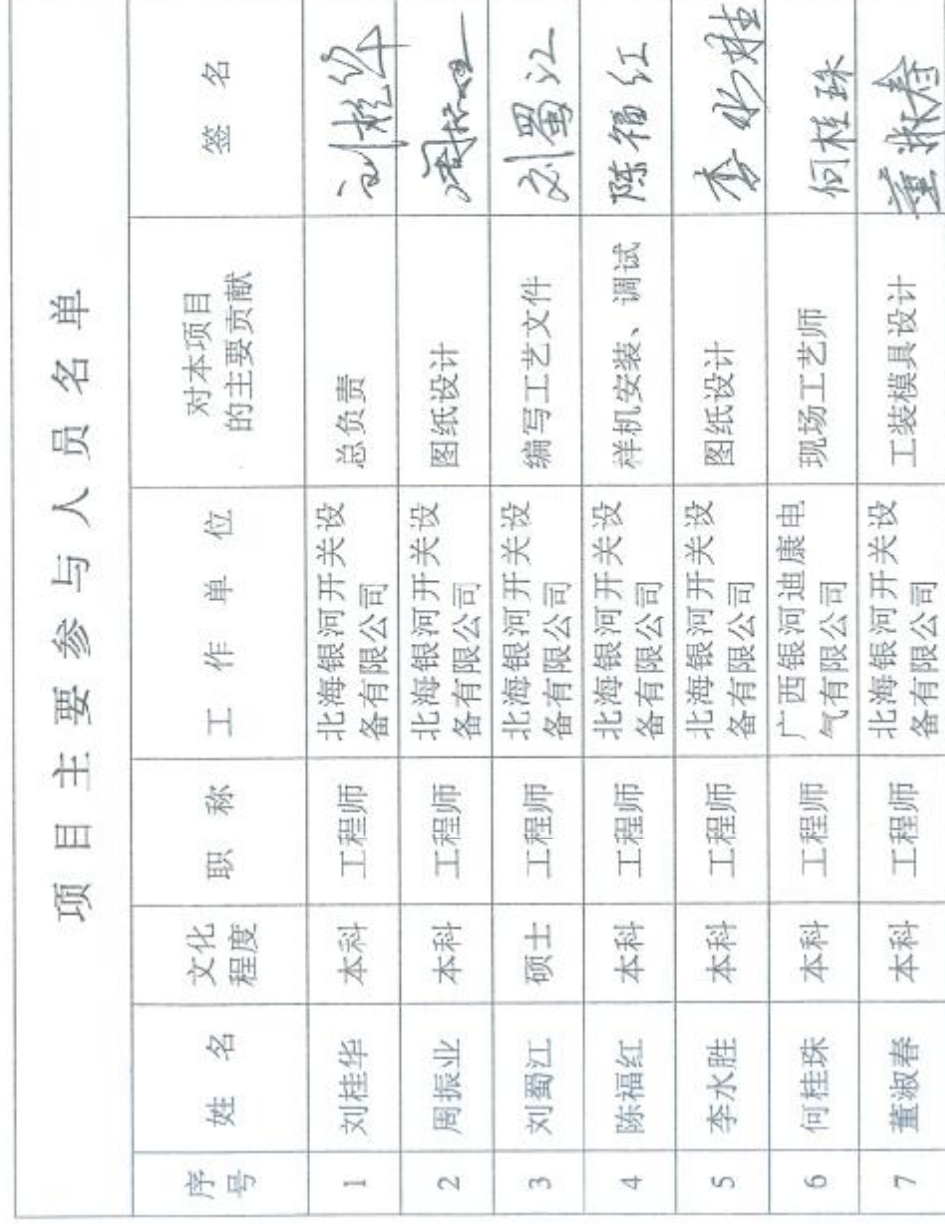 项目主要参与人员名单
序号 姓名 文化程度 职称 工作单位 对本项目的主要贡献 签名
1 刘桂华 本科 工程师 北海银河开关设备有限公司 总负责 刘桂华
2 周振业 本科 工程师 北海银河开关设备有限公司 图纸设计 周振业
3 刘蜀江 硕士 工程师 北海银河开关设备有限公司 编写工艺文件 刘蜀江
4 陈福红 本科 工程师 北海银河开关设备有限公司 样机安装、调试 陈福红
5 李水胜 本科 工程师 北海银河开关设备有限公司 图纸设计 李水胜
6 何桂珠 本科 工程师 广西银河迪康电气有限公司 现场工艺师 何桂珠
7 董淑春 本科 工程师 北海银河开关设备有限公司 工装模具设计 董淑春